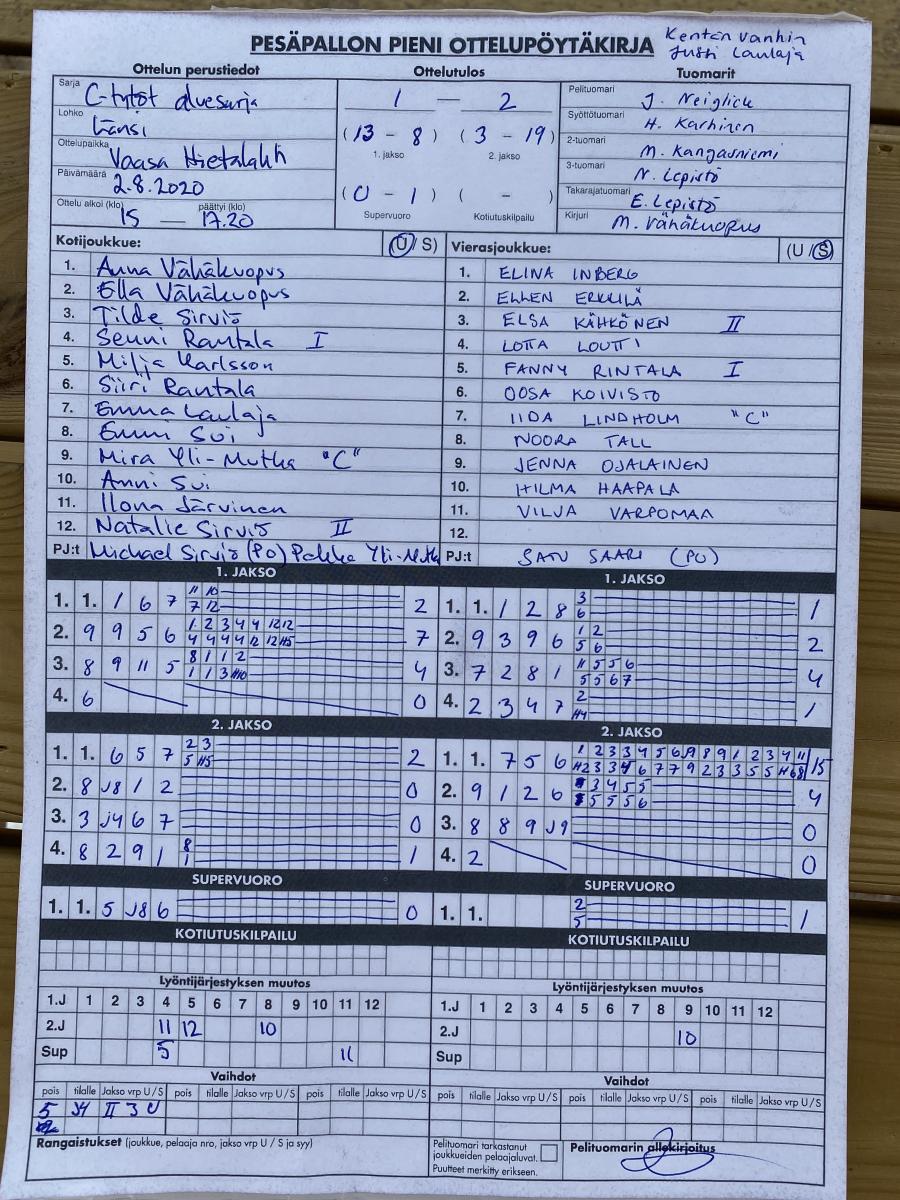 PESÄPALLON PIENI OTTELUPÖYTÄKIRJA
Kentän vanhin
Jussi Laulaja
Ottelun perustiedot
Sarja C-tytöt aluesarja
Lohko Länsi
Ottelupaikka Vaasa Hietalahti
Päivämäärä 2.8.2020
Ottelu alkoi (klo) 15 — päättyi (klo) 17.20
Ottelutulos
1 — 2
(13 - 8) (3 - 19)
1. jakso 2. jakso
(0 - 1) ( - )
Supervuoro Kotiutuskilpailu
Tuomarit
Pelituomari J. Neiglick
Syöttötuomari H. Karhinen
2-tuomari M. Kangasniemi
3-tuomari N. Lepistö
Takarajatuomari E. Lepistö
Kirjuri M. Vähäkuopus
Kotijoukkue: (U / S)
1. Anna Vähäkuopus
2. Ella Vähäkuopus
3. Tilde Sirviö
4. Senni Rantala I
5. Milja Karlsson
6. Siiri Rantala
7. Emma Laulaja
8. Emmi Sui
9. Mira Yli-Mutka "C"
10. Anni Sui
11. Ilona Järvinen
12. Natalie Sirviö II
PJ:t Michael Sirviö (PO) Pekka Yli-Mutka
Vierasjoukkue: (U / S)
1. ELINA INBERG
2. ELLEN ERKKILÄ
3. ELSA KÄHKÖNEN II
4. LOTTA LOUTTI
5. FANNY RINTALA I
6. OOSA KOIVISTO
7. IIDA LINDHOLM "C"
8. NOORA TALL
9. JENNA OJALAINEN
10. HILMA HAAPALA
11. VILJA VARPOMAA
12.
PJ:t SATU SAARI (PO)
1. JAKSO
1. 1. 1 6 7 11 10 2
7 12
2. 9 9 5 6 1 2 3 4 4 12 12 7
4 4 4 4 12 12 H5
3. 8 9 11 5 8 1 1 2 4
1 1 3 H10
4. 6 0
2. JAKSO
1. 1. 6 5 7 2 3 2
5 H5
2. 8 J8 1 2 0
3. 3 J4 6 7 0
4. 8 2 9 1 8 1
1
SUPERVUORO
1. 1. 5 J8 6 0
KOTIUTUSKILPAILU
1. JAKSO
1. 1. 1 2 8 3 1
6
2. 9 3 9 6 1 2 2
5 6
3. 7 2 8 1 11 5 5 6 4
5 5 6 7
4. 2 3 4 7 2 1
H4
2. JAKSO
1. 1. 7 5 6 1 2 3 3 4 5 6 9 8 9 1 2 3 4 11 15
2. 9 1 2 6 3 4 5 5 4
5 5 5 6
3. 8 8 9 J9 0
4. 2 0
SUPERVUORO
1. 1. 2 1
5
KOTIUTUSKILPAILU
Lyöntijärjestyksen muutos
1.J 1 2 3 4 5 6 7 8 9 10 11 12
2.J 11 12 10
Sup 5 11
Lyöntijärjestyksen muutos
1.J 1 2 3 4 5 6 7 8 9 10 11 12
2.J 10
Sup
Vaihdot
pois tilalle Jakso vrp U / S pois tilalle Jakso vrp U / S pois tilalle Jakso vrp U / S
5 J4 II 3 U
Vaihdot
pois tilalle Jakso vrp U / S pois tilalle Jakso vrp U / S pois tilalle Jakso vrp U / S
Rangaistukset (joukkue, pelaaja nro, jakso vrp U / S ja syy)
Pelituomari tarkastanut
joukkueiden pelaajaluvat.
Puutteet merkitty erikseen.
Pelituomarin allekirjoitus